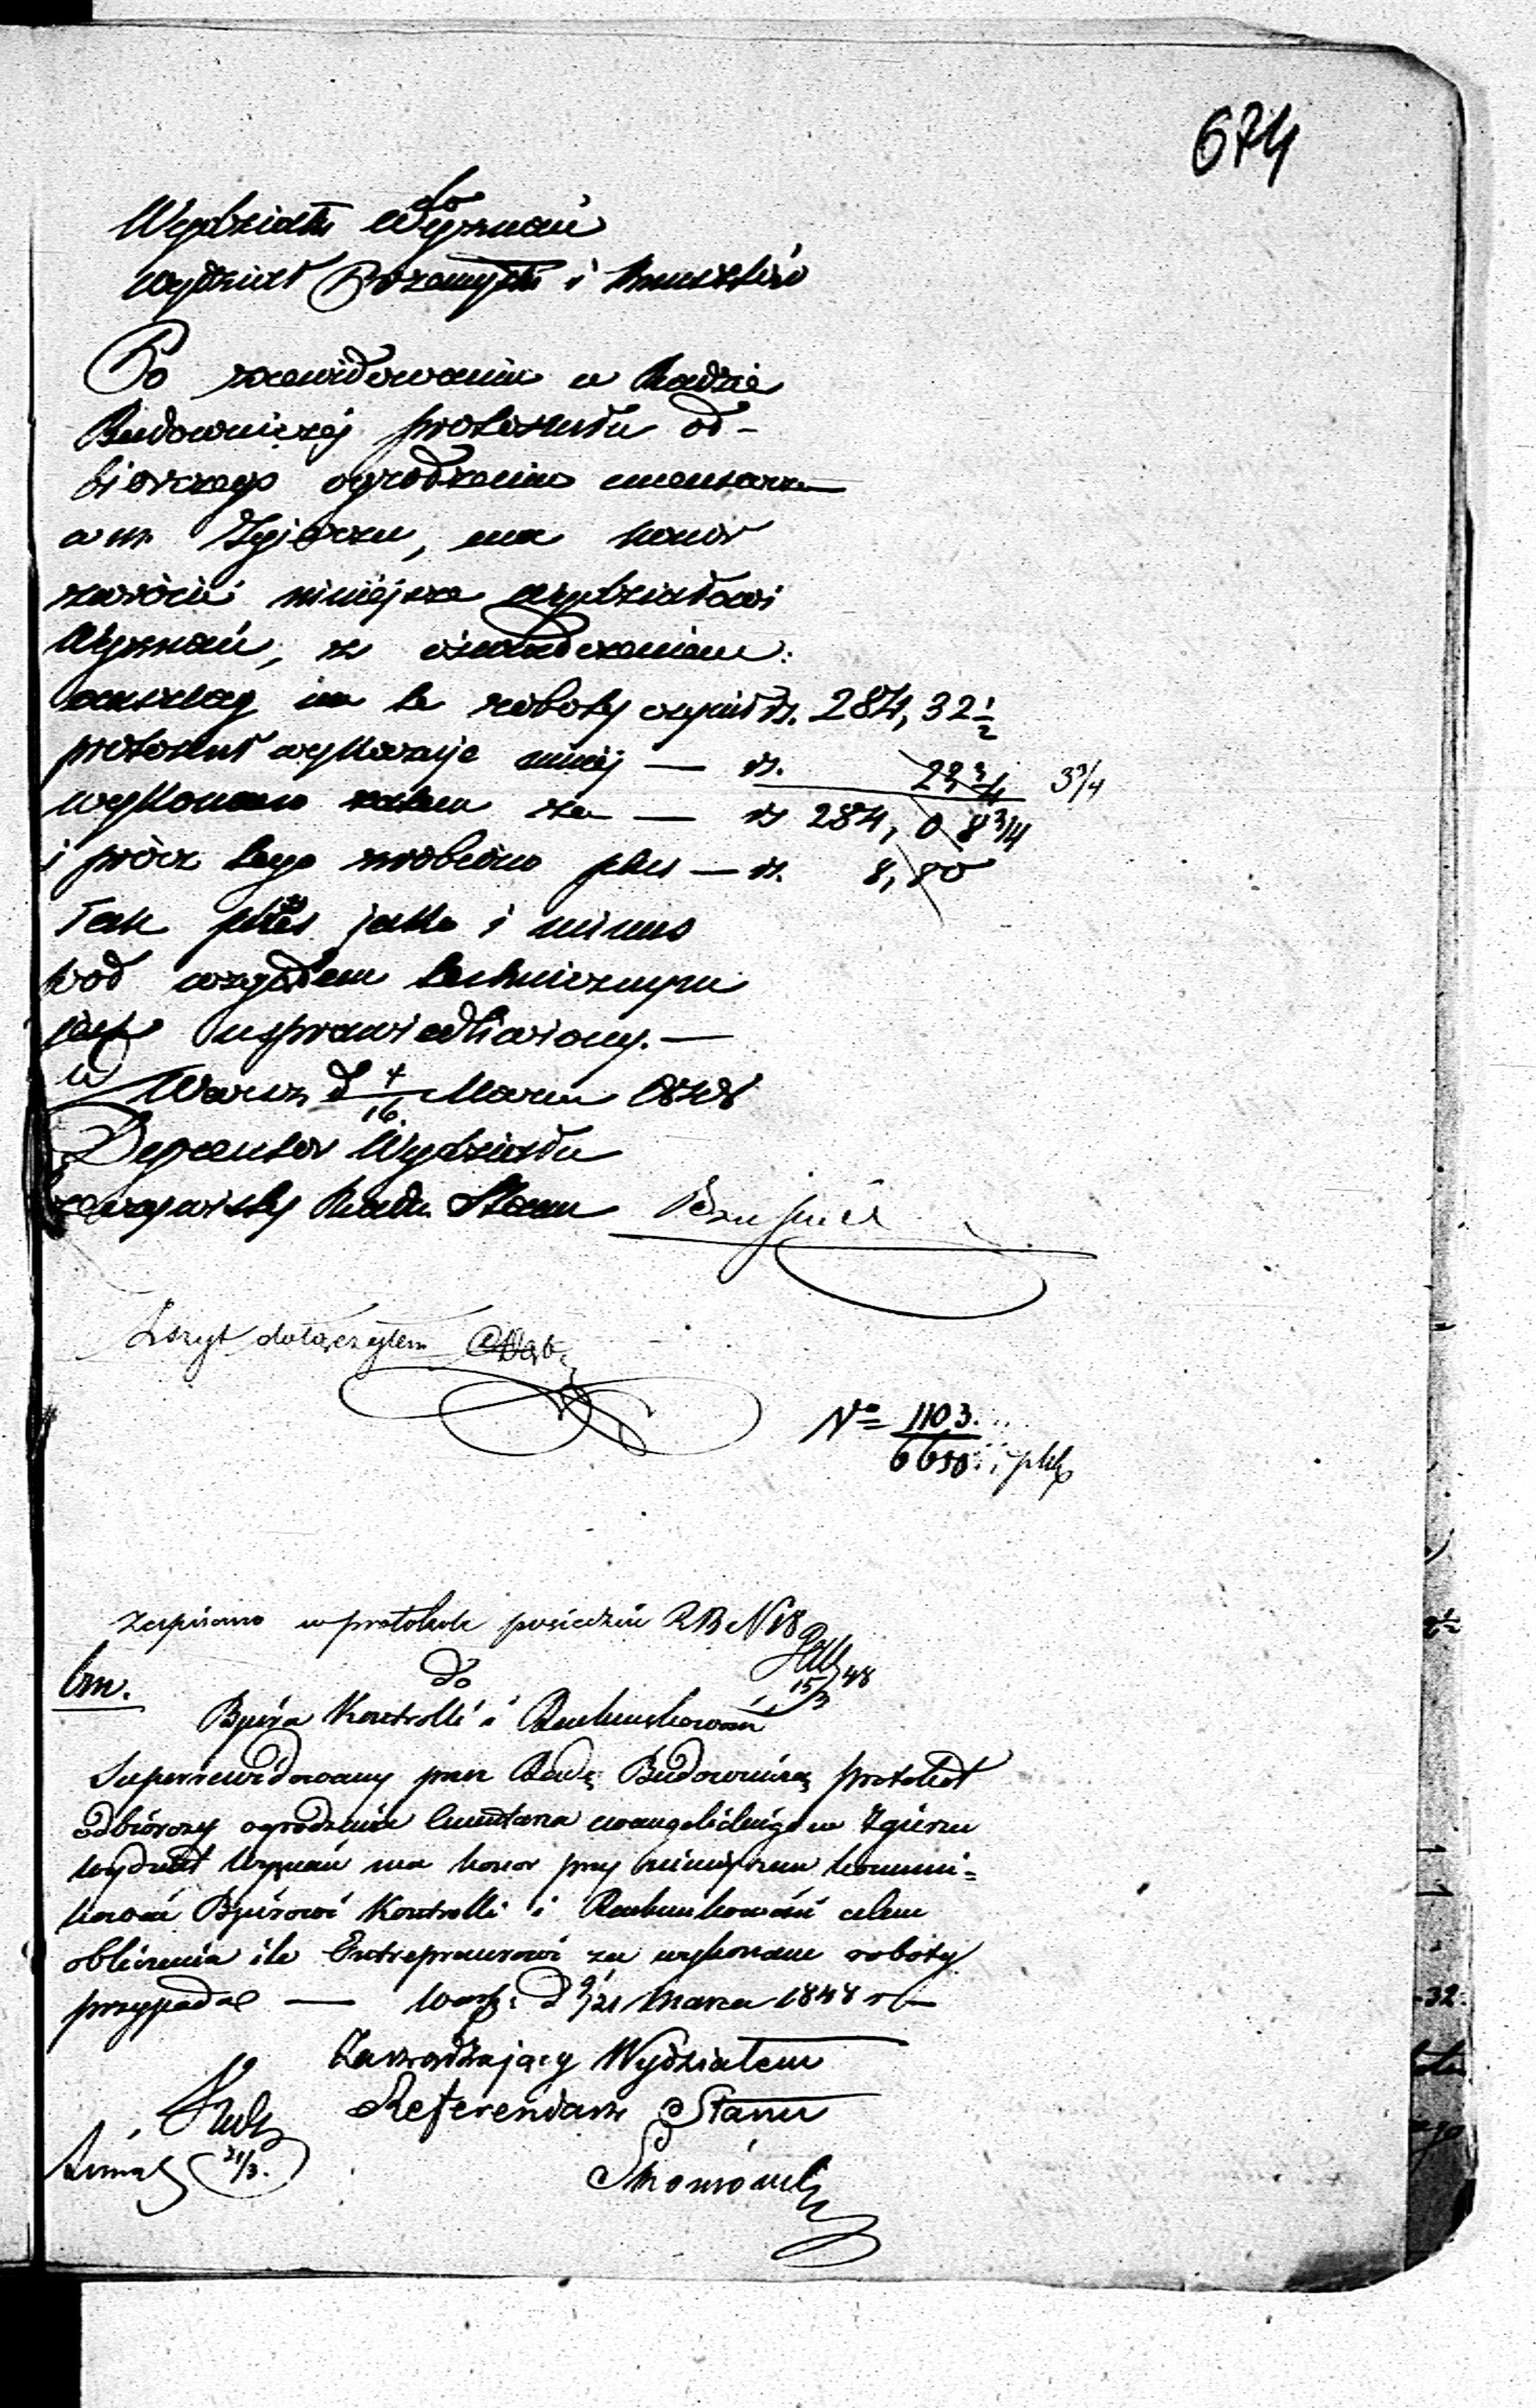 674
do
Wydziału Wyznań
Wydział Przemysłu i Kunsztów
Po zrewidowaniu w Radzie
Budowniczéj protokułu od-
biorczego ogrodzenia cmentarza
w m. Zgierzu, ma honor
zwrócić niniejsze wydziałowi
Wyznań, z oświadczeniem:
anszlag na te roboty czynił rs. 284, 32 1/2
protokuł wykazuje mniéj — rs. 23 3/4 3 3/4
wykonano zatem za — rs 284, 0 8 3/4
i prócz tego zrobiono plus — rs. 8, 80
Tak plus jako i minus
pod względem technicznym
jest usprawiedliwiony. —
w Warsz. d 4/16 Marca 1848
Dyrektor Wydziału
Rzeczywisty Radca Stanu
Zszyt dołączyłem
No 1103.
6650
Zapisano w protokule posiedzeń RB N 18
15/3 48
do
Bióra Kontrolli i Rachunkowości
Superrewidowany przez Radę Budowniczą protokół
odbiorczy ogrodzenia Cmentarza ewangelickiego w Zgierzu
Wydział Wyznań ma honor przy niniejszem kommuni=
kować Biórowi Kontrolli i Rachunkowości celem
obliczenia ile Entreprenerowi za wykonane roboty
przypada — Warsz. d 9/21 Marca 1848 r —
Zarządzający Wydziałem
Referendarz Stanu
21/3.